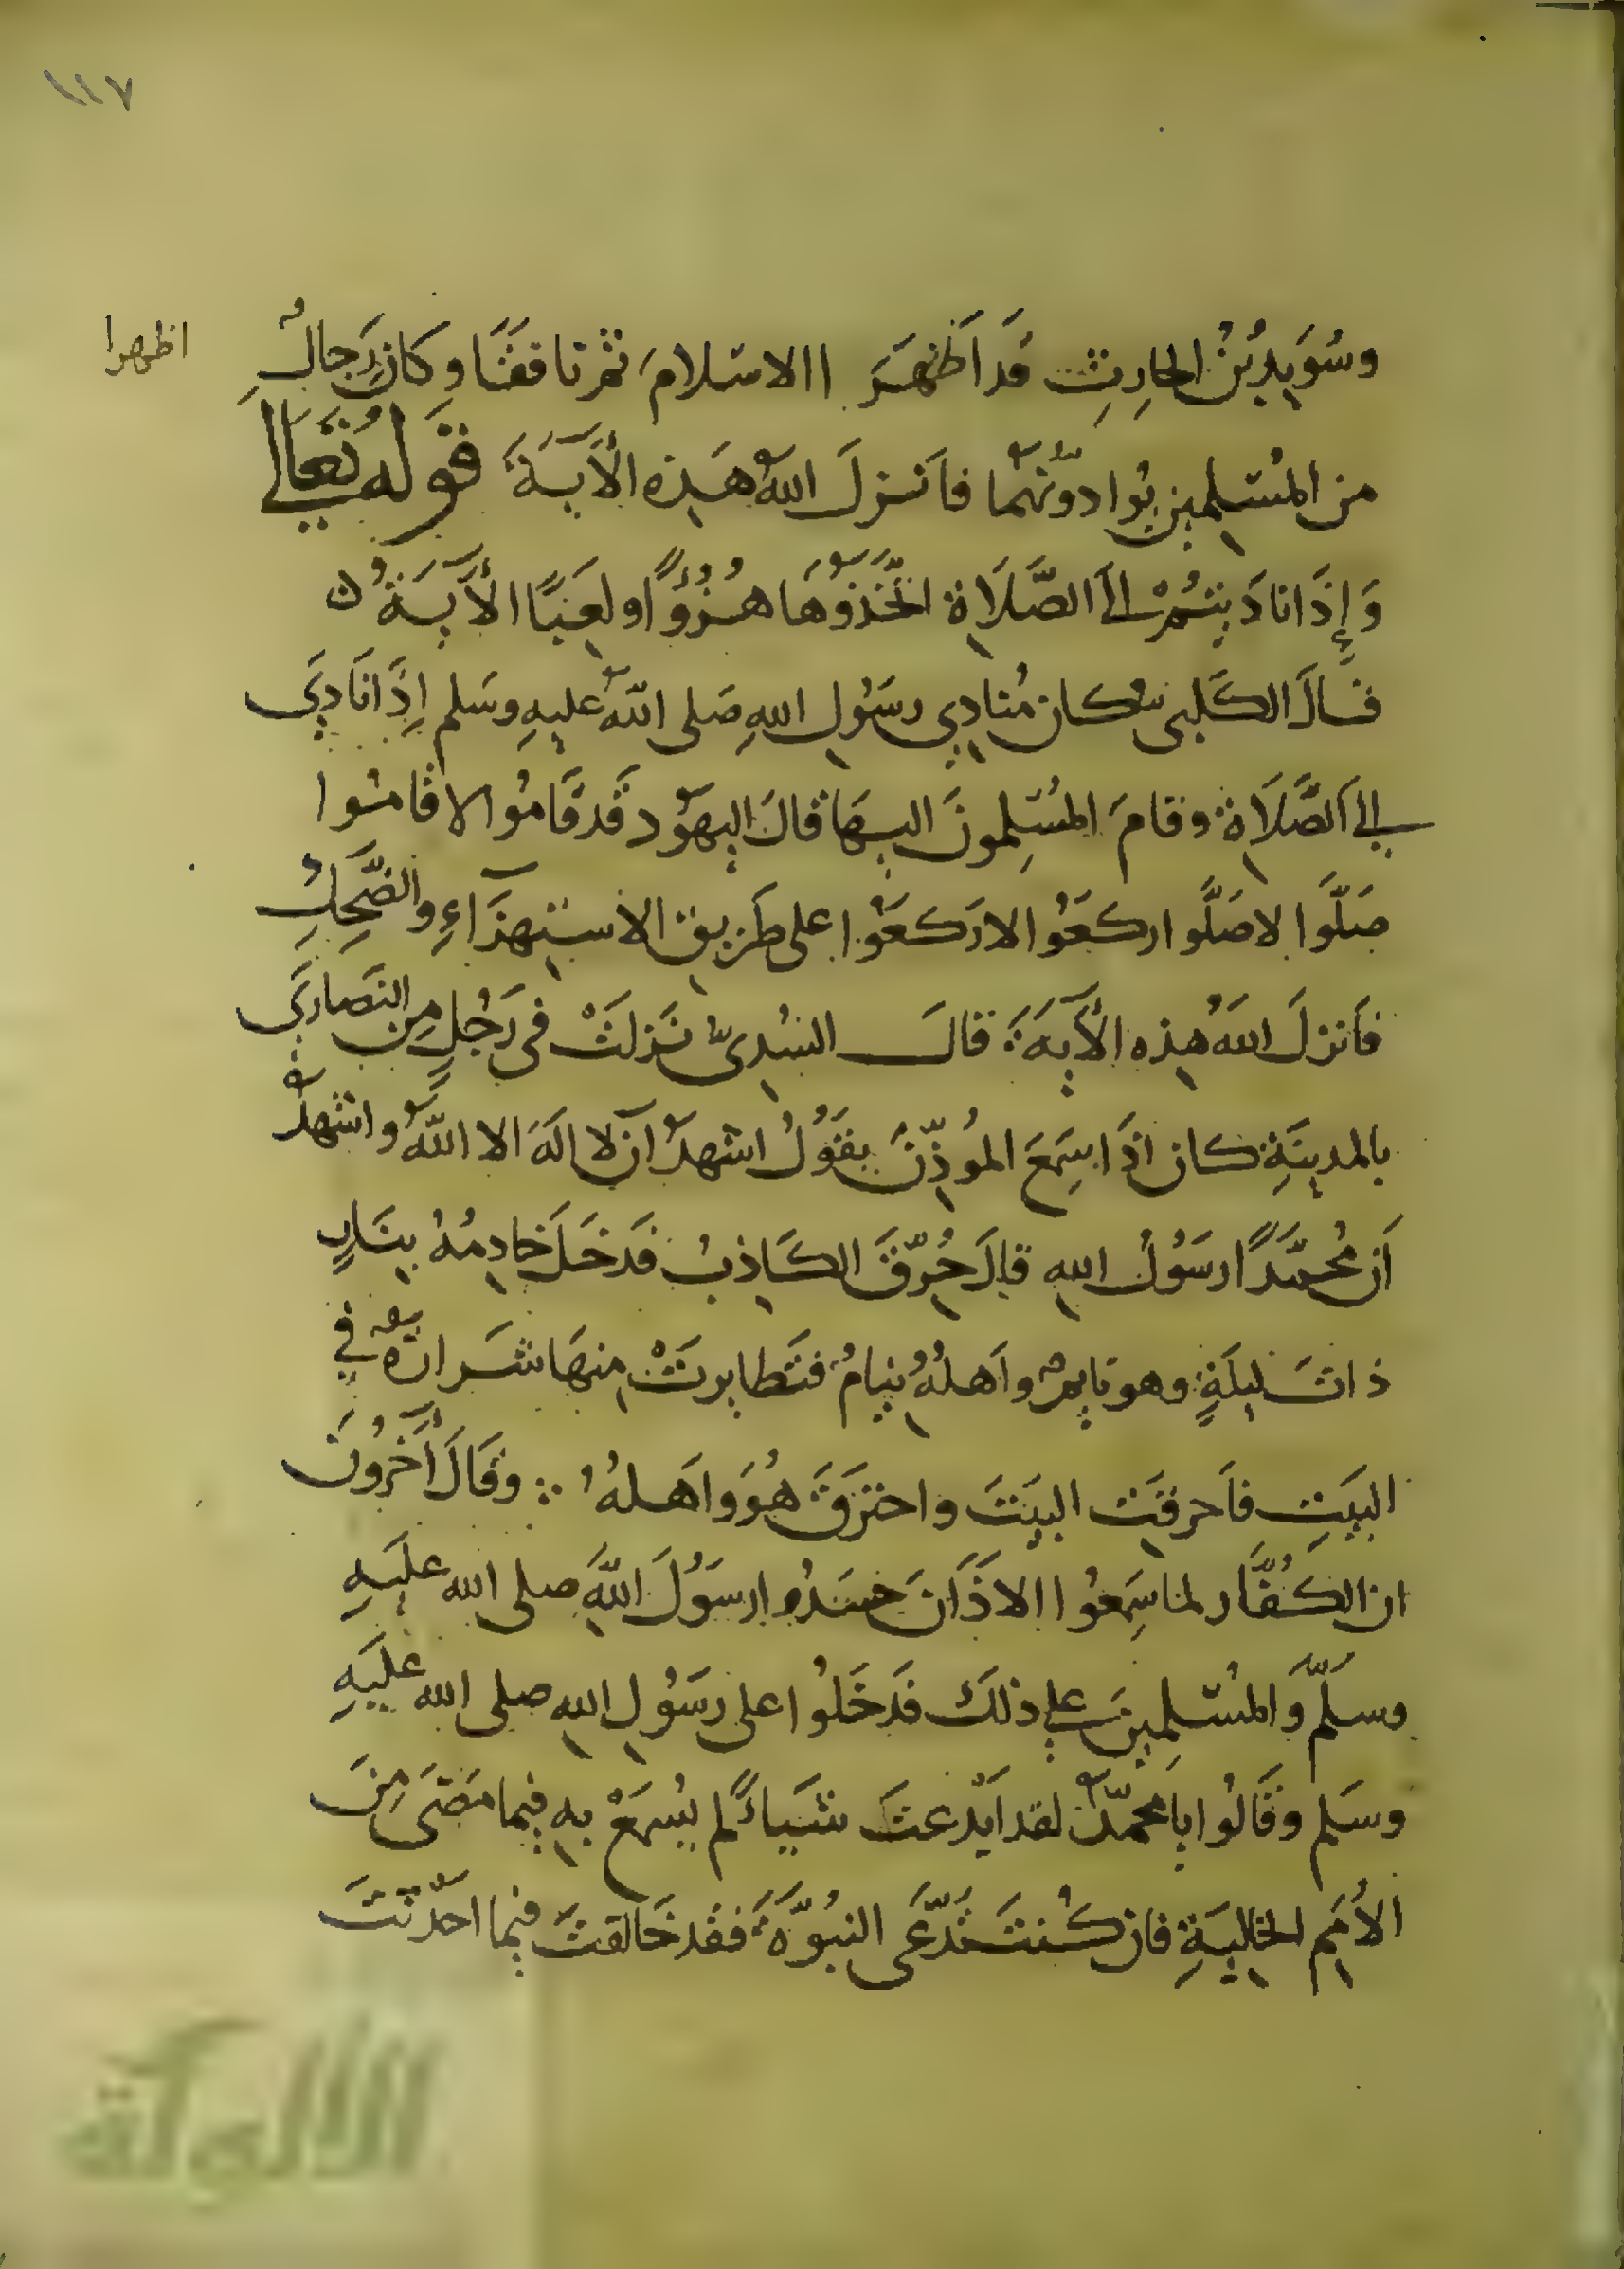 ١١٧
وسُوَيدُ بنُ الحارِثِ قَد اَظهَرَ ا الاسلامَ ثم نافقَا وكانَ رجالٌ
اظهرا
من المُسلمين يُوادّونهُما فاَنزلَ اللهُ هَذِه الآيَةَ قوله تعَالى
وَإِذَا نادَيتُمْ إلَى الصَّلَاة اتخَّذُوهَا هُزُؤًا ولعِبًا الآيَةُ
قالَ الكَلبى كان مُنادِي رسَوُل اللهِ صَلى اللهُ عليهِ وسَلم إذَا نَادَى
إلى الصَّلَاة وقامَ المُسْلِمونَ اليهَا قالَ اليهوُد قَد قَامُوا لا قامُوا
صَلّوا لا صَلَّوا اركَعَوُا لا رَكَعَوُا على طَريق الاستهزَاءِ والضَّحِكِ
فَاَنزلَ اللهُ هذِه الآيةَ قالَ السُدىّ نَزلَتْ في رَجُلٍ مِن النصَارَى
بالمدينَةِ كان اذَا سِمَعَ المُوذِّنَ يقَوُلُ اشهدُ ان لا الَهَ الا اللهُ واشهدُ
اَن مُحمَّدًا رسَوُلُ اللهِ قالَ حُرّقَ الكَاذِبُ فَدَخلَ خادِمُهُ بنَارٍ
ذاتَ ليلَةٍ وهو نايمٌ واَهلُهُ نيامٌ فتَطايرتْ منهَا شَرارةٌ في
البيَتِ فاَحرقَت البيتَ واحترَقَ هُوَ واَهلهُ وقَالَ آخَرُونَ
ان الكُفَّار لما سَمِعُوا الاذَانَ حسَدُوا رسَوُلَ اللهِ صلى الله عليَهِ
وسلّم وَالمُسلِمينَ على ذلكَ فدَخَلُوا على رسَوُل اللهِ صلى الله عليَهِ
وسَلم وقَالُوا يا محمّدُ لقد ابَدعتَ شَياءً لم يُسمَعْ بهِ فيما مَضَى مِنَ
الاُمَم الخاليَةِ فان كُنتَ تَدّعَى النبُوّةَ فقَد خَالفتَ فيما احَدثتَ